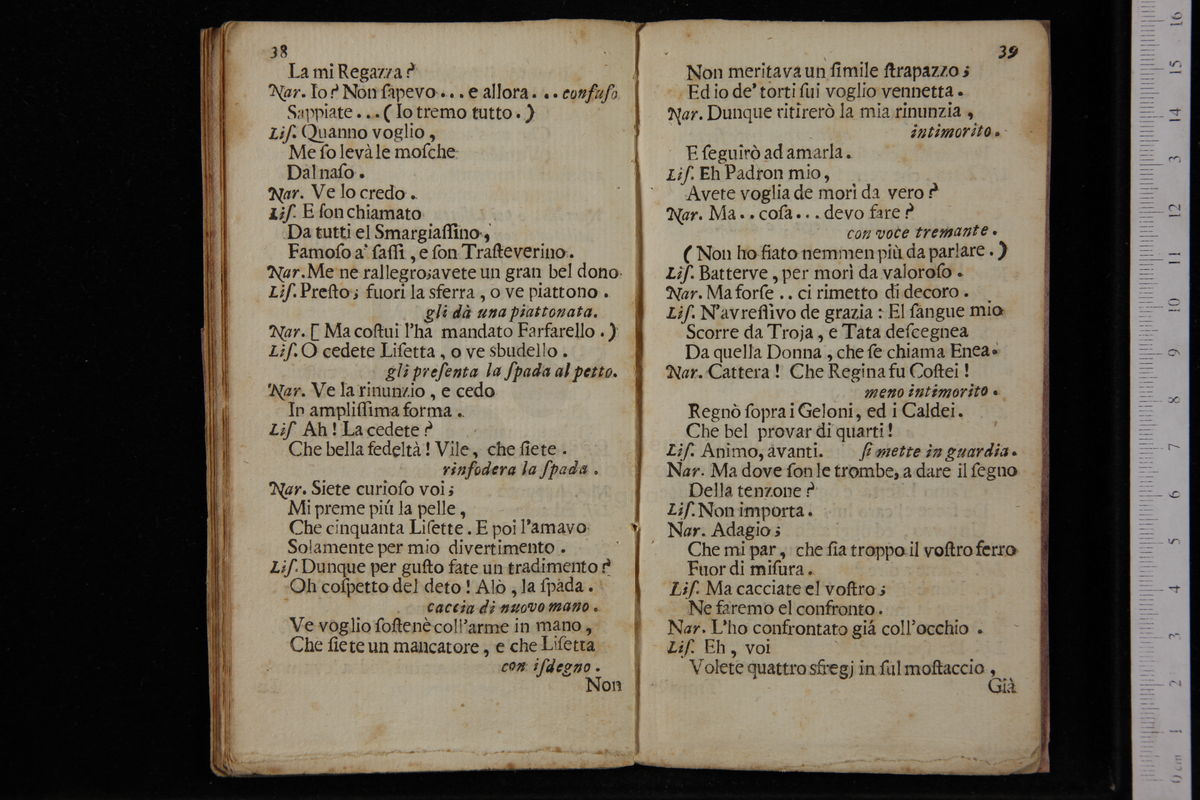 38
La mi Regazza?
Nar. Io? Non ſapevo... e allora... confuſo
Sappiate...(Io tremo tutto.)
Liſ. Quanno voglio,
Me ſo levà le moſche
Dal naſo.
Nar. Ve lo credo.
Liſ. E ſon chiamato
Da tutti el Smargiaſſino,
Famoſo a' ſaſſi, e ſon Traſteverino.
Nar. Me ne rallegro; avete un gran bel dono
Liſ. Preſto; fuori la sferra, o ve piattono.
gli dà una piattonata.
Nar. [Ma coſtui l'ha mandato Farfarello.)
Liſ. O cedete Liſetta, o ve sbudello.
gli preſenta la ſpada al petto.
Nar. Ve la rinunzio, e cedo
In ampliſſima forma.
Liſ Ah! La cedete?
Che bella fedeltà! Vile, che ſiete.
rinfodera la ſpada.
Nar. Siete curioſo voi;
Mi preme piú la pelle,
Che cinquanta Liſette. E poi l'amavo
Solamente per mio divertimento.
Liſ. Dunque per guſto fate un tradimento?
Oh coſpetto del deto! Alò, la ſpada.
caccia di nuovo mano.
Ve voglio ſoſtenè coll'arme in mano,
Che ſiete un mancatore, e che Liſetta
con iſdegno.
Non
39
Non meritava un ſimile ſtrapazzo;
Ed io de' torti ſui voglio vennetta.
Nar. Dunque ritirerò la mia rinunzia,
intimorito.
E ſeguirò ad amarla.
Liſ. Eh Padron mio,
Avete voglia de morì da vero?
Nar. Ma.. coſa... devo fare?
con voce tremante.
(Non ho fiato nemmen più da parlare.)
Liſ. Batterve, per morì da valoroſo.
Nar. Ma forſe.. ci rimetto di decoro.
Liſ. N'avreſſivo de grazia: El ſangue mio
Scorre da Troja, e Tata deſcegnea
Da quella Donna, che ſe chiama Enea.
Nar. Cattera! Che Regina fu Coſtei!
meno intimorito.
Regnò ſopra i Geloni, ed i Caldei.
Che bel provar di quarti!
Liſ. Animo, avanti. ſi mette in guardia.
Nar. Ma dove ſon le trombe, a dare il ſegno
Della tenzone?
Liſ. Non importa.
Nar. Adagio;
Che mi par, che ſia troppo il voſtro ferro
Fuor di miſura.
Liſ. Ma cacciate el voſtro;
Ne faremo el confronto.
Nar. L'ho confrontato giá coll'occhio.
Liſ. Eh, voi
Volete quattro sfregj in ſul moſtaccio,
Già